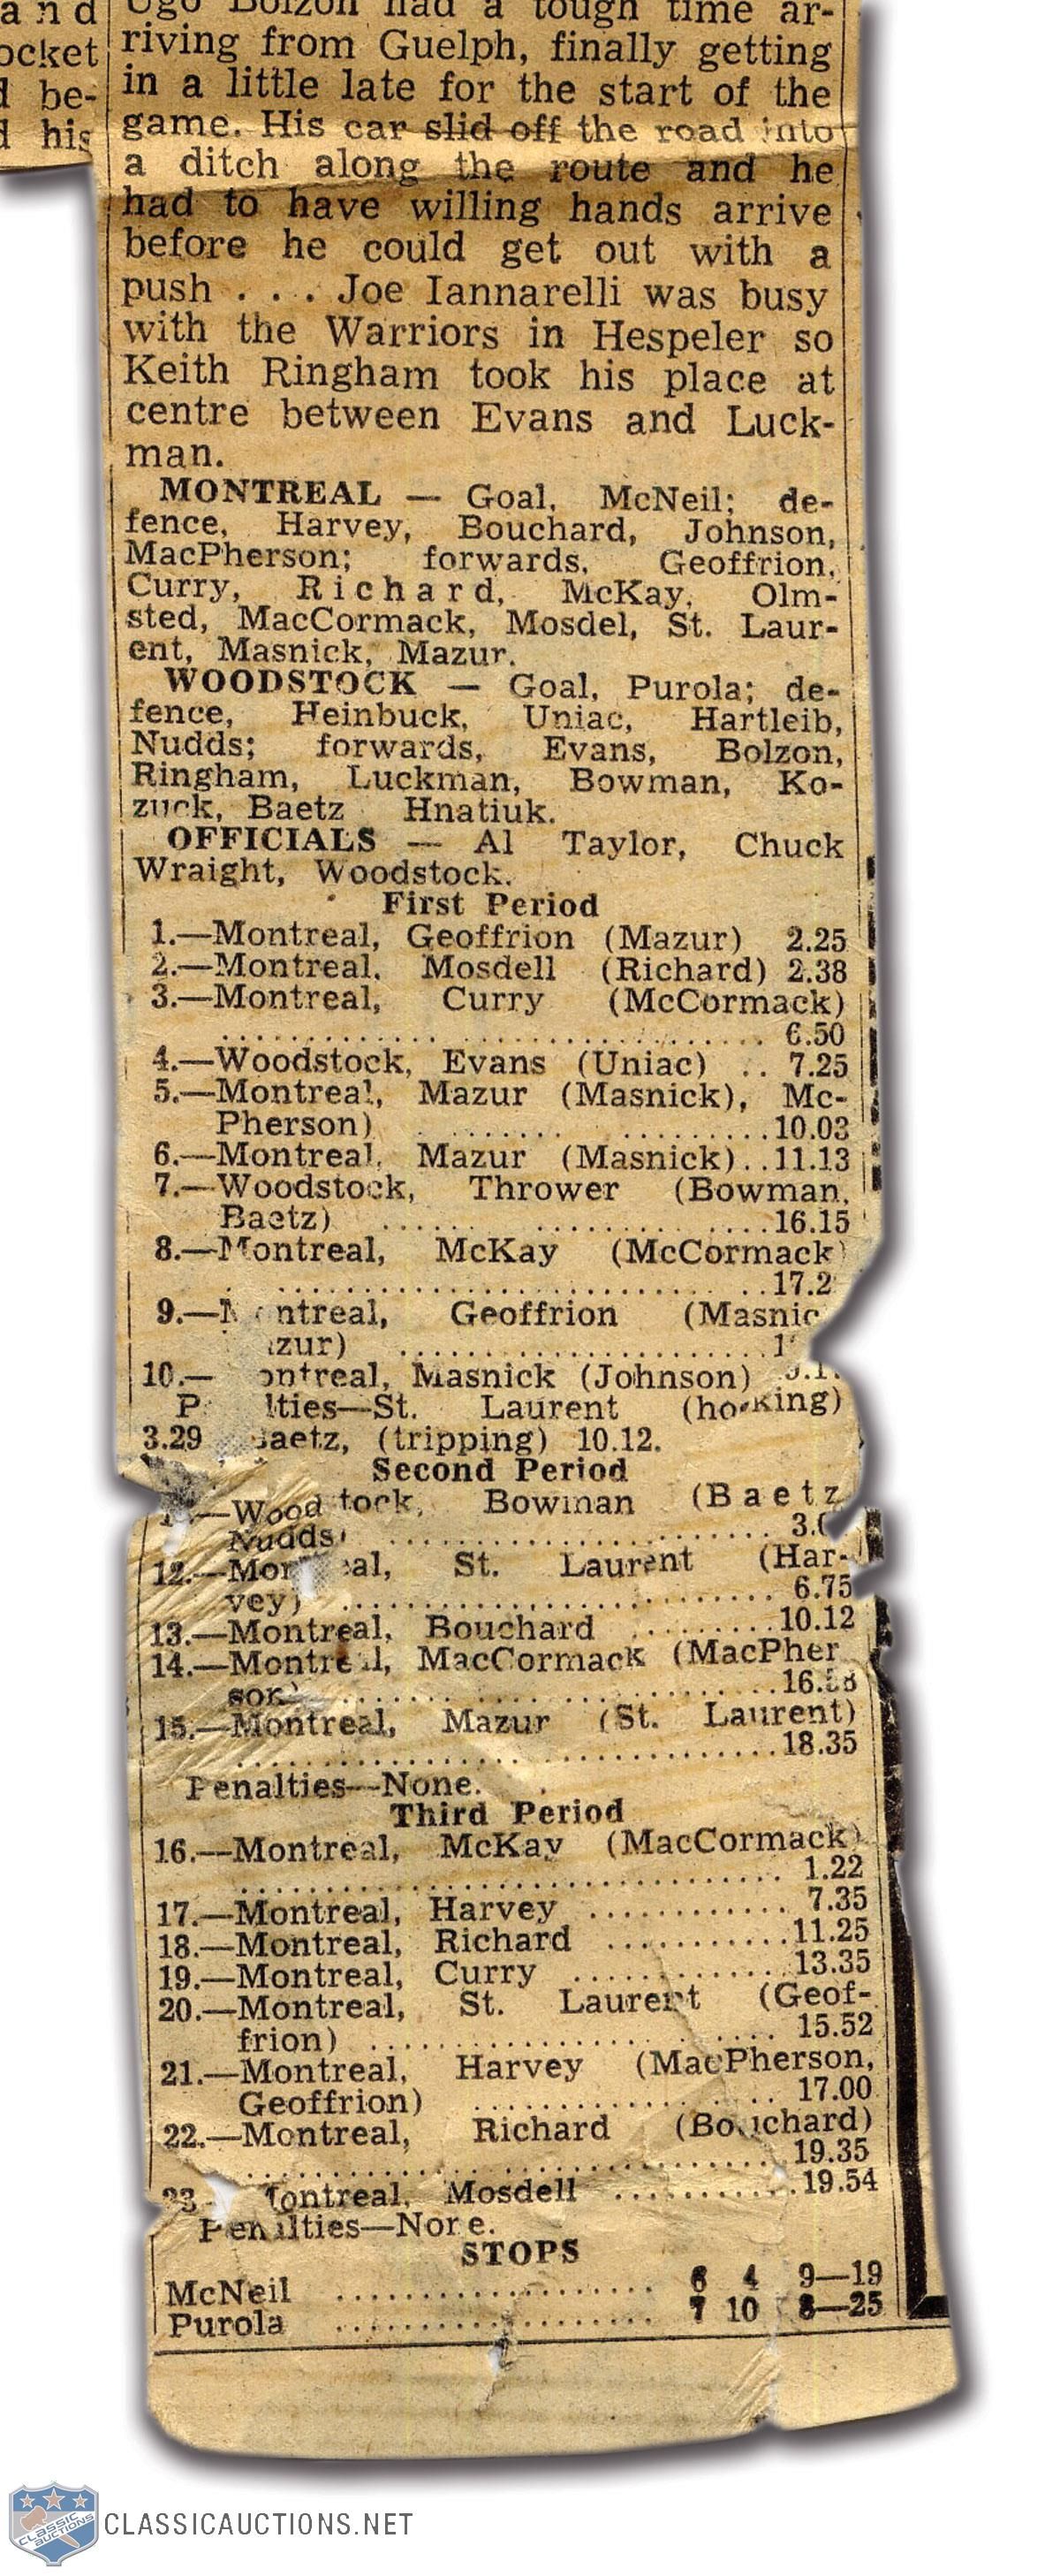 and
ocket
d be-
d his
Ugo Bolzon had a tough time ar-
riving from Guelph, finally getting
in a little late for the start of the
game. His car slid off the road into
a ditch along the route and he
had to have willing hands arrive
before he could get out with a
push . . . Joe Iannarelli was busy
with the Warriors in Hespeler so
Keith Ringham took his place at
centre between Evans and Luck-
man.
MONTREAL — Goal, McNeil; de-
fence, Harvey, Bouchard, Johnson,
MacPherson; forwards, Geoffrion,
Curry, Richard, McKay, Olm-
sted, MacCormack, Mosdel, St. Laur-
ent, Masnick, Mazur.
WOODSTOCK — Goal, Purola; de-
fence, Heinbuck, Uniac, Hartleib,
Nudds; forwards, Evans, Bolzon,
Ringham, Luckman, Bowman, Ko-
zuck, Baetz Hnatiuk.
OFFICIALS — Al Taylor, Chuck
Wraight, Woodstock.
First Period
1.—Montreal, Geoffrion (Mazur) 2.25
2.—Montreal, Mosdell (Richard) 2.38
3.—Montreal, Curry (McCormack)
.................................. 6.50
4.—Woodstock, Evans (Uniac) .. 7.25
5.—Montreal, Mazur (Masnick), Mc-
Pherson) ....................10.03
6.—Montreal, Mazur (Masnick)..11.13
7.—Woodstock, Thrower (Bowman,
Baetz) ......................16.15
8.—Montreal, McKay (McCormack)
..................................17.2
9.—M ntreal, Geoffrion (Masnic
zur) ......................1
10.— ontreal, Masnick (Johnson)
P lties—St. Laurent (hooking)
3.29 Baetz, (tripping) 10.12.
Second Period
.—Woodstock, Bowman (Baetz
Nudds) ...................... 3.0
12.—Montreal, St. Laurent (Har-
vey) ........................ 6.75
13.—Montreal, Bouchard .........10.12
14.—Montreal, MacCormack (MacPher
son) ........................16.
15.—Montreal, Mazur (St. Laurent)
..................................18.35
Penalties—None.
Third Period
16.—Montreal, McKay (MacCormack)
.................................. 1.22
17.—Montreal, Harvey ............ 7.35
18.—Montreal, Richard ...........11.25
19.—Montreal, Curry .............13.35
20.—Montreal, St. Laurent (Geof-
frion) ...................... 15.52
21.—Montreal, Harvey (MacPherson,
Geoffrion) .................. 17.00
22.—Montreal, Richard (Bouchard)
..................................19.35
23 Montreal, Mosdell ...........19.54
Penalties—None.
STOPS
McNeil .................... 6 4 9—19
Purola .................... 7 10 8—25
CLASSIC AUCTIONS
CLASSICAUCTIONS.NET